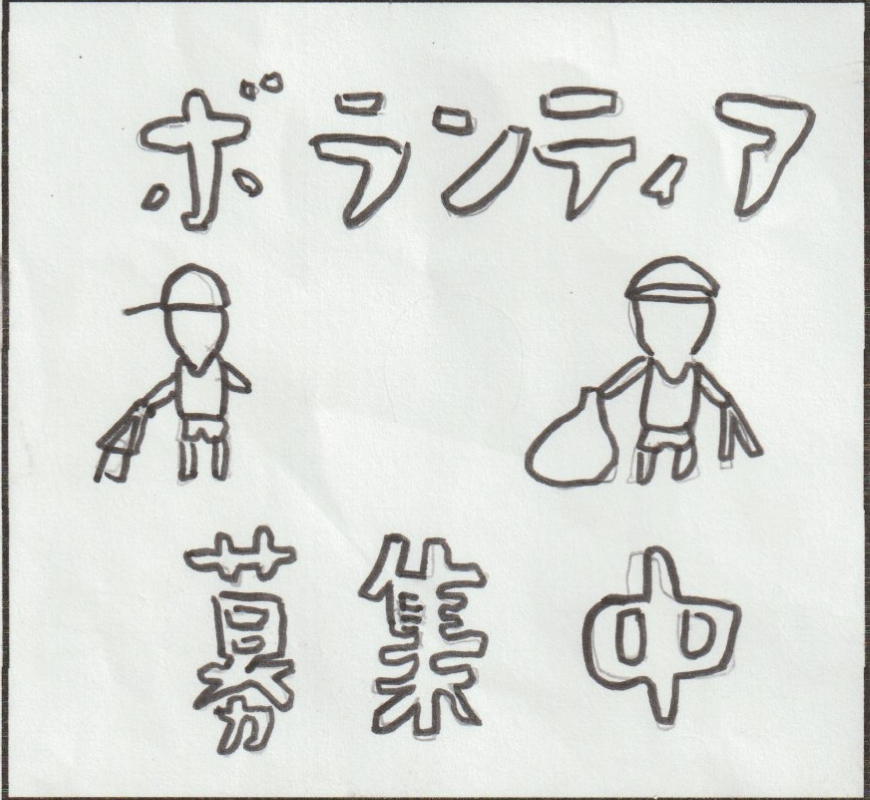 ボランティア
募集中